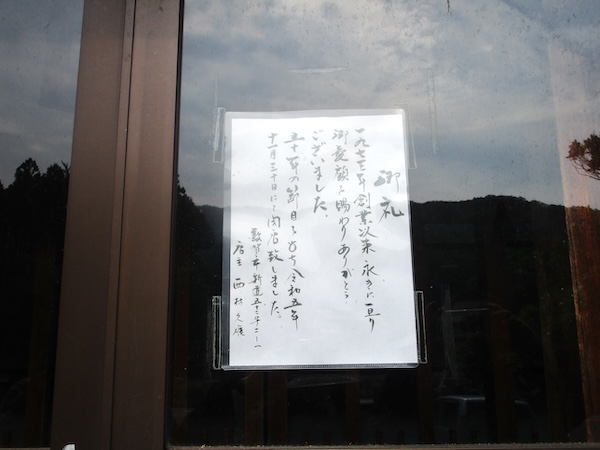 御礼
一九七三年創業以来 永きに亘り
御愛顧を賜わりありがとう
ございました。
五十年の節目を以ち令和五年
十一月三十日にて閉店致しました。
敦賀市新道五十三号二ー一
店主 西村久康